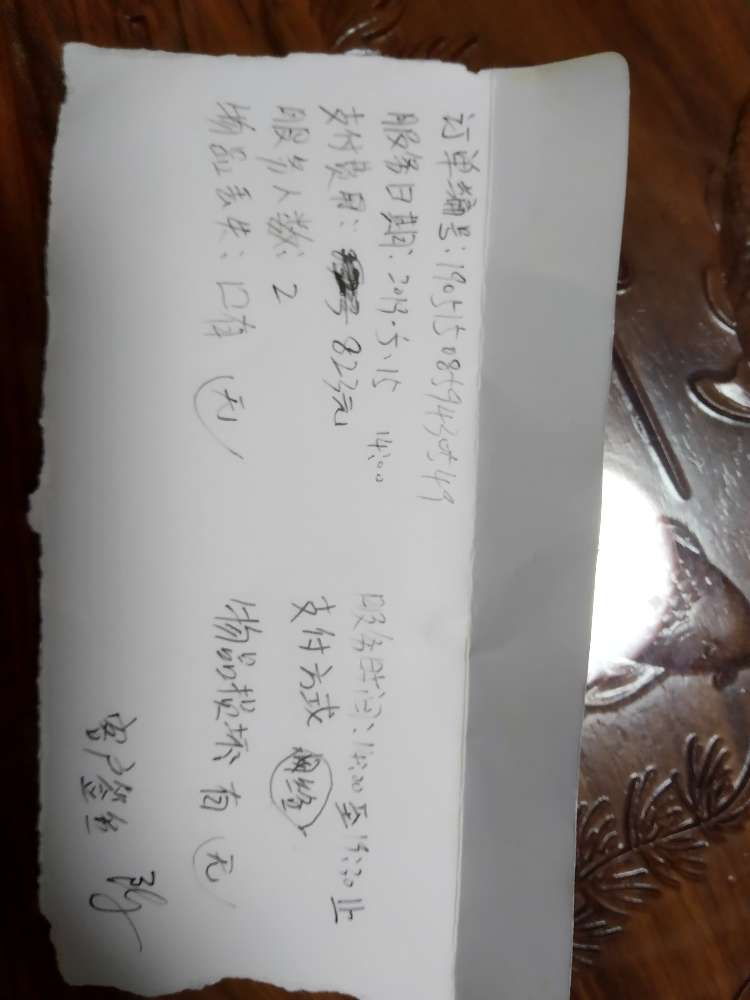 订单编号:1905150859430549
服务日期:2019.5.15 14:00
服务时间:14:00至19:30止
支付费用: 823元
支付方式 网络
服务人数:2
物品丢失:口有 无
物品损坏 有 无
客户签名